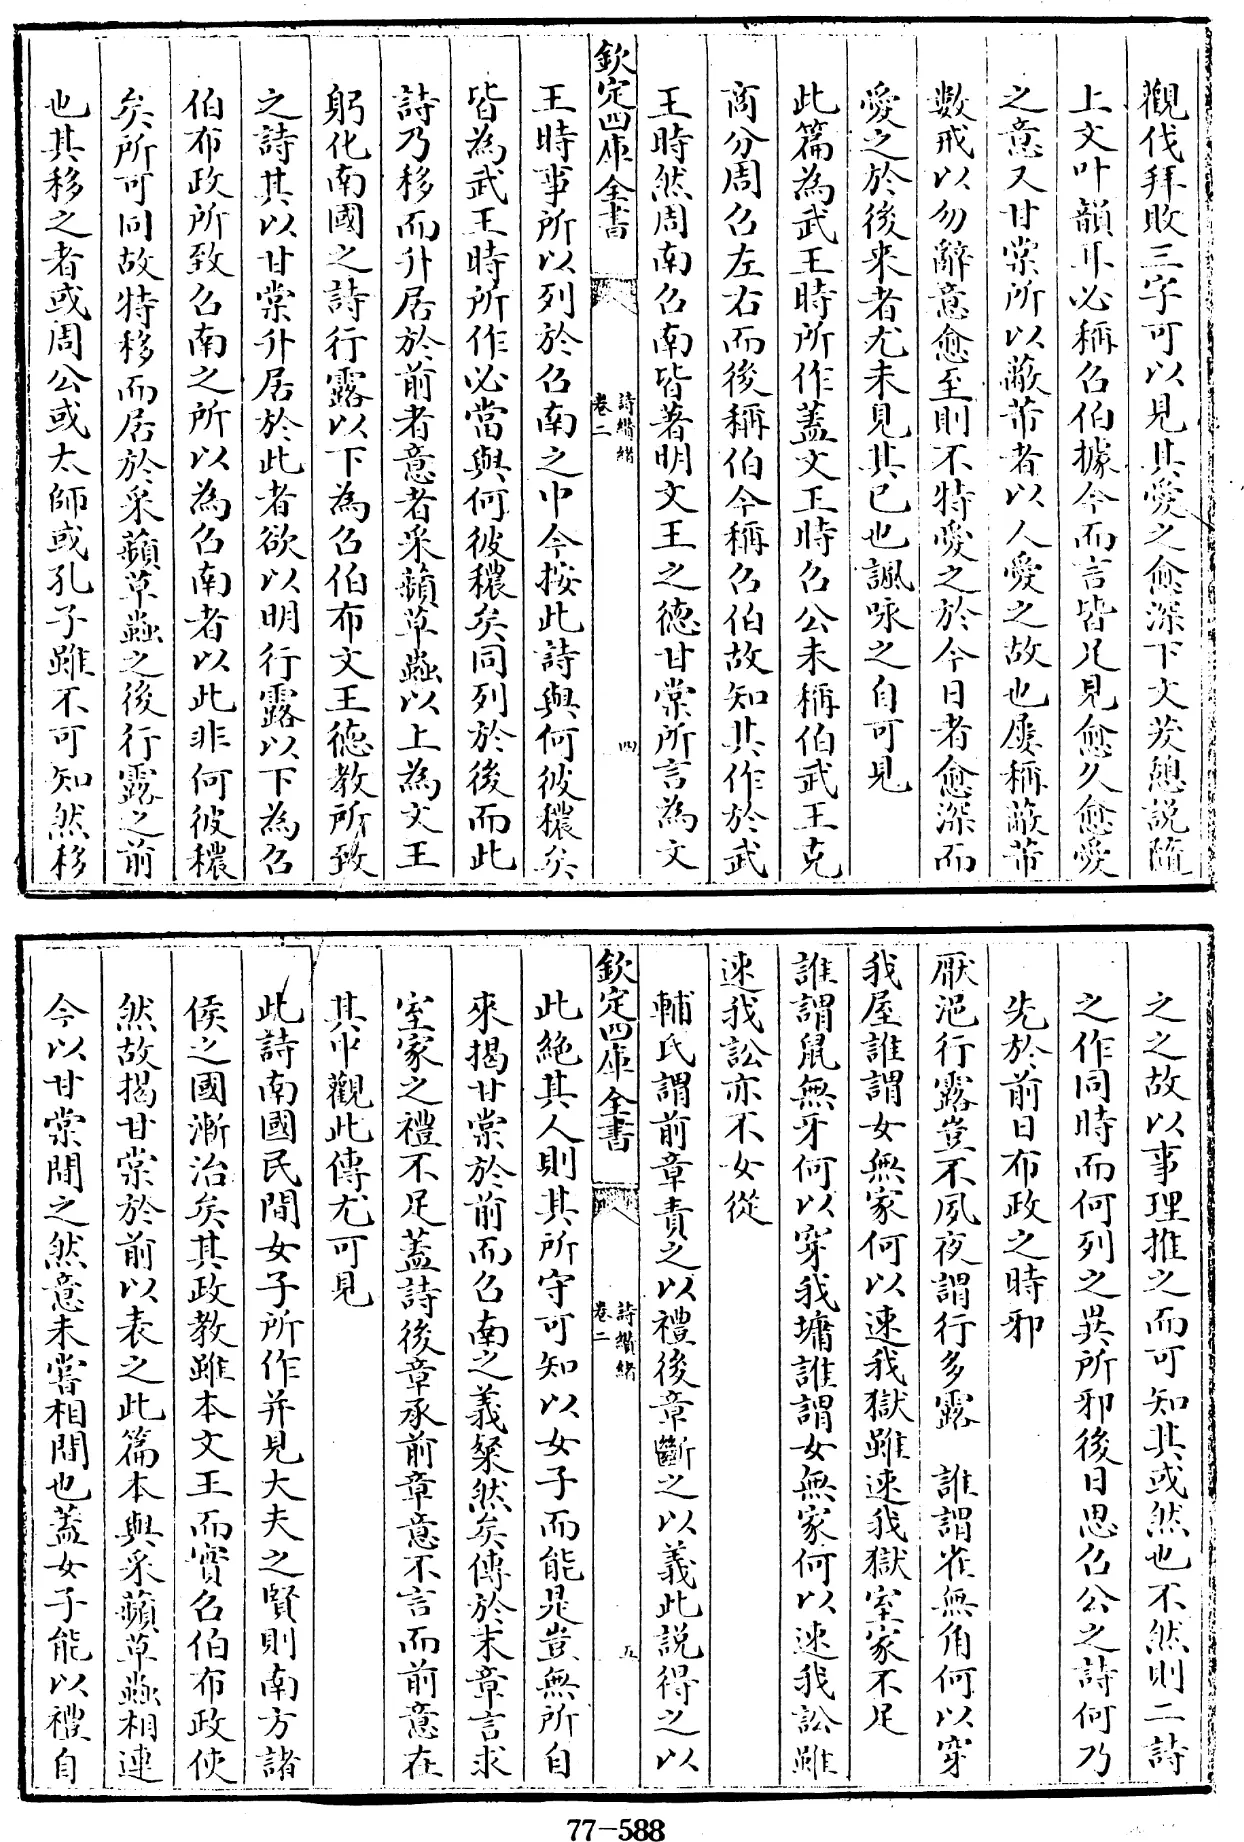 觀伐拜敗三字可以見其愛之愈深下文茇憩説隨
上文叶韻耳必稱召伯據今而言皆足見愈久愈愛
之意又甘棠所以蔽芾者以人愛之故也屢稱蔽芾
數戒以勿辭意愈至則不特愛之於今日者愈深而
愛之於後来者尤未見其已也諷咏之自可見
此篇為武王時所作蓋文王時召公未稱伯武王克
商分周召左右而後稱伯今稱召伯故知其作於武
王時然周南召南皆著明文王之德甘棠所言為文
欽定四庫全書
詩纘緒
卷二
四
王時事所以列於召南之中今按此詩與何彼穠矣
皆為武王時所作必當與何彼穠矣同列於後而此
詩乃移而升居於前者意者采蘋草蟲以上為文王
躬化南國之詩行露以下為召伯布文王德教所致
之詩其以甘棠升居於此者欲以明行露以下為召
伯布政所致召南之所以為召南者以此非何彼穠
矣所可同故特移而居於采蘋草蟲之後行露之前
也其移之者或周公或太師或孔子雖不可知然移
之之故以事理推之而可知其或然也不然則二詩
之作同時而何列之異所邪後日思召公之詩何乃
先於前日布政之時邪
厭浥行露豈不夙夜謂行多露　誰謂雀無角何以穿
我屋誰謂女無家何以速我獄雖速我獄室家不足
誰謂鼠無牙何以穿我墉誰謂女無家何以速我訟雖
速我訟亦不女從
輔氏謂前章責之以禮後章斷之以義此説得之以
欽定四庫全書
詩纘緒
卷二
五
此絶其人則其所守可知以女子而能是豈無所自
來揭甘棠於前而召南之義粲然矣傳於末章言求
室家之禮不足蓋詩後章承前章意不言而前意在
其中觀此傳尤可見
此詩南國民間女子所作并見大夫之賢則南方諸
侯之國漸治矣其政教雖本文王而實召伯布政使
然故揭甘棠於前以表之此篇本與采蘋草蟲相連
今以甘棠間之然意未嘗相間也蓋女子能以禮自
77-588